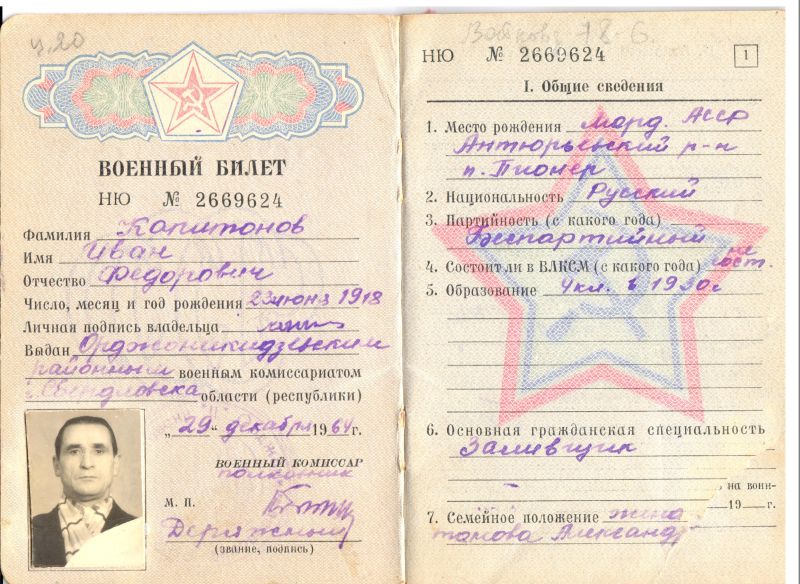 ч.20
ВОЕННЫЙ БИЛЕТ
НЮ № 2669624
Фамилия Капитонов
Имя Иван
Отчество Федорович
Число, месяц и год рождения 23 июня 1918
Личная подпись владельца
Выдан Орджоникидзевским
районным военным комиссариатом
г. Свердловска области (республики)
„29“ декабря 1964 г.
ВОЕННЫЙ КОМИССАР
полковник
М. П.
(звание, подпись)
78-6
НЮ № 2669624
1
I. Общие сведения
1. Место рождения Морд. АССР
Антюрьевский р-н
п. Пионер
2. Национальность Русский
3. Партийность (с какого года)
Беспартийный
4. Состоит ли в ВЛКСМ (с какого года) не
сост.
5. Образование 4 кл. в 1930 г
6. Основная гражданская специальность
Заливщик
на воин-
19 г.
7. Семейное положение жена
Александ